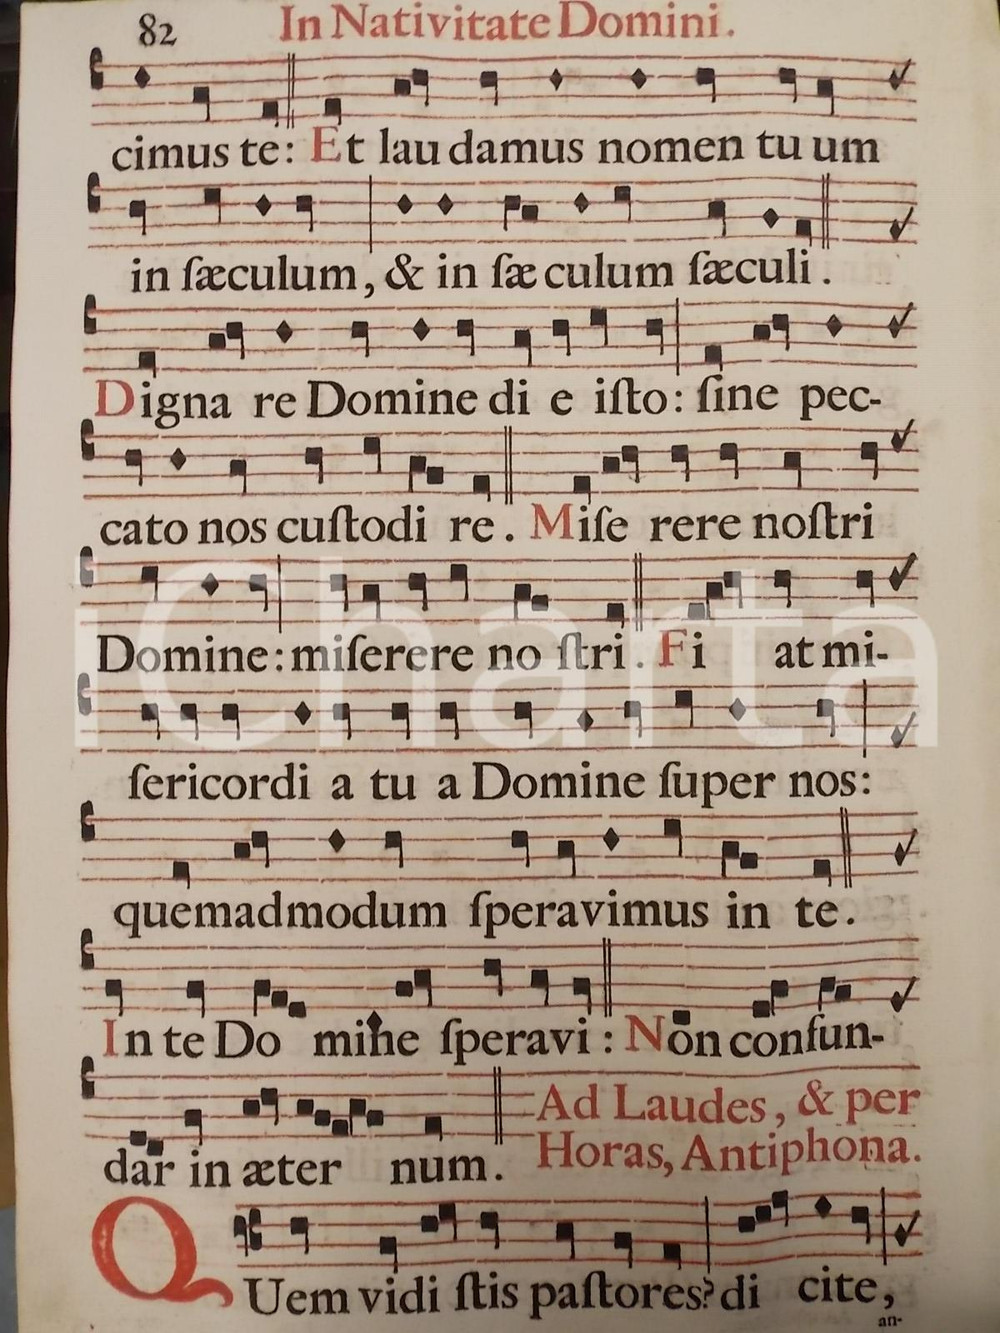 82 In Nativitate Domini.
cimus te: Et lau damus nomen tu um
in ſæculum, & in ſæ culum ſæculi.
Digna re Domine di e iſto: ſine pec-
cato nos cuſtodi re. Miſe rere noſtri
Domine: miſerere no ſtri. Fi at mi-
ſericordi a tu a Domine ſuper nos:
quemadmodum ſperavimus in te.
In te Do mine ſperavi: Non confun-
dar in æter num. Ad Laudes, & per
Horas, Antiphona.
QUem vidi ſtis paſtores? di cite,
an-
iCharta